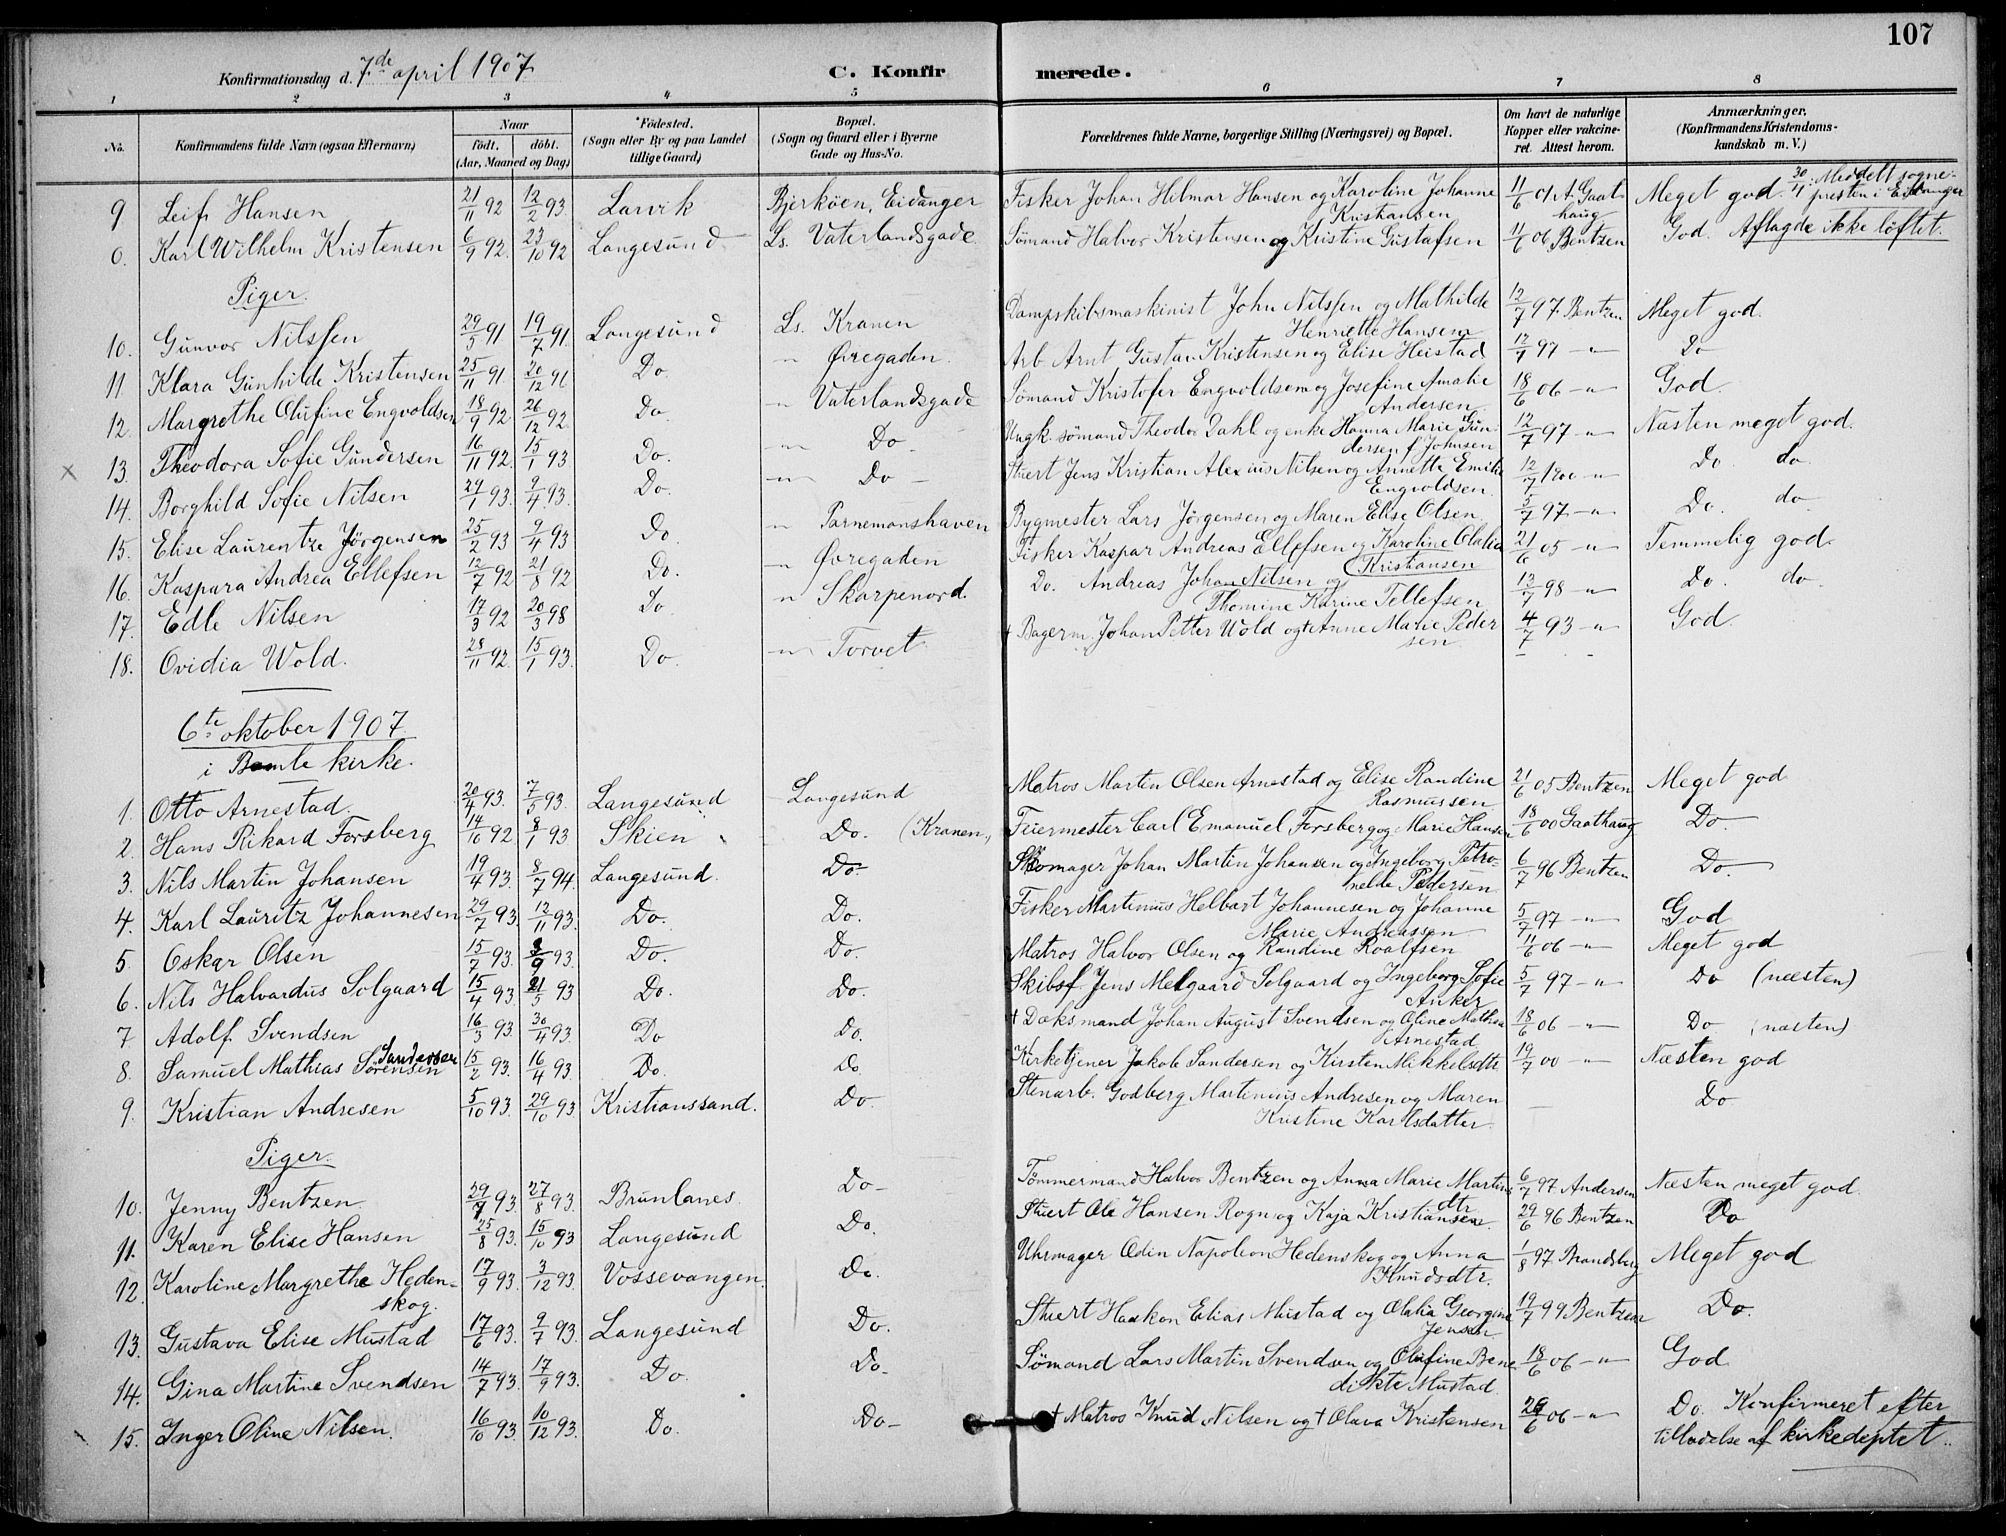 107
Konfirmationsdag d. 7de april 1907
C. Konfirmerede.
1 2 3 4 5 6 7 8
No. Konfirmandens fulde Navn (ogsaa Efternavn) Naar født. døbt. (Aar, Maaned og Dag) *Fødested. (Sogn eller By og paa Landet tillige Gaard) Bopæl. (Sogn og Gaard eller i Byerne Gade og Hus-No. Forældrenes fulde Navne, borgerlige Stilling (Næringsvei) og Bopæl. Om havt de naturlige Kopper eller vakcineret. Attest herom. Anmærkninger. (Konfirmandens Kristendomskundskab m. V.)
9 Leif Hansen 21/11 92 12/2 93. Larvik Bjerköen, Eidanger Fisker Johan Hilmar Hansen og Karoline Johanne Kristiansen 11/6 01 A. Gaathaug Meget god. 30/4 Meddelt sognepresten i Eidanger
0. Karl Wilhelm Kristensen 6/9 92. 23/10 92 Langesund Ls. Vaterlandsgade Sömand Halvor Kristensen og Kristine Gustafsen 11/6 06 Bentzen God. Aflagde ikke løftet.
Piger.
10. Gunvor Nilssen 29/5 91 19/7 91. Langesund Ls. Kranen Dampskibsmaskinist John Nilssen og Mathilde Henriette Hansen 12/7 97 Bentzen Meget god.
11 Klara Gunhilde Kristensen 25/11 91 20/12 91 Do " Øvregaden. Arb Arnt Gustav Kristensen og Elise Heistad 12/7 97 " Do
12. Margrethe Olufine Engvoldsen 18/9 92 26/12 92. Do " Vaterlandsgade Sömand Kristofer Engvoldsen og Josefine Amalie Andersen 18/6 06 " God.
x 13. Theodora Sofie Gundersen 16/11 92. 15/1 93 Do. " Do Ungk. sömand Theodor Dahl og enke Hanna Marie Gundersen f. Johnsen 12/7 97 " Næsten meget god.
14. Borghild Sofie Nilsen 29/1 93. 9/4 93. Do. " Do - Stuert Jens Kristian Alexius Nilsen og Annette Emilie Engvoldsen. 12/7 1900 " Do do
15. Elise Laurentze Jørgensen 25/2 93 9/4 93 Do " Tarnemanshaven Bygmester Lars Jørgensen og Maren Elise Olsen 5/7 97 " Do. do.
16. Kaspara Andrea Ellefsen 12/7 92 21/8 92 Do. " Øvregaden Fisker Kaspar Andreas Ellefsen og Karoline Olalia Kristiansen 21/6 05 " Temmelig god.
17. Edle Nilsen 17/3 92 20/3 98 Do " Skarpenord. Do. Andreas Johan Nilsen og Thomine Karine Tellefsen 13/7 98 " Do. do
18. Ovidia Wold. 28/11 92. 15/1 93. Do. " Torvet † Bagerm. Johan Petter Wold og Anne Marie Pedersen 4/7 93 " God.
6te oktober 1907
i Bamle kirke.
1. Otto Arnestad. 20/4 93. 7/5 93. Langesund Langesund Matros Martin Olsen Arnestad og Elise Randine Rasmussen 21/6 05 Bentzen Meget god
2. Hans Rikard Forsberg 14/10 92 8/1 93 Skien Do. (Kranen) Feiermester Carl Emanuel Forsberg og Marie Hansen 18/6 00 Gaathaug Do
3. Nils Martin Johansen 19/4 93. 8/7 94. Langesund. Do Skomager Johan Martin Johansen og Ingeborg Petronelde Pedersen 6/7 96 Bentzen Do.
4. Karl Lauritz Johannesen 29/7 93. 12/11 93. Do. Do. Fisker Martinius Helbart Johannesen og Johanne Marie Andreassen 5/7 97 " God
5 Oskar Olsen 15/7 93. 3/9 93. Do. Do. Matros Halvor Olsen og Randine Roalfsen 11/6 06 " Meget god
6. Nils Halvardus Solgaard 15/4 93. 21/5 93 Do. Do. Skibsf. Jens Melgaard Solgaard og Ingeborg Sofie Anker 5/7 97 " Do (næsten)
7 Adolf Svendsen 16/3 93. 30/4 93. Do Do. † Doksmand Johan August Svendsen og Oline Mathea Arnestad 18/6 06 " Do (næsten)
8. Samuel Mathias Sörensen Sandersen 15/2 93. 16/4 93. Do. Do Kirketjener Jakob Sandersen og Kirsten Mikkelsdtr 19/7 00 " Næsten god
9. Kristian Andresen 5/10 93. 29/10 93 Kristianssand. Do. Stenarb. Godberg Martinius Andresen og Maren Kristine Karlsdatter. — Do
Piger.
10. Jenny Bentzen 29/7 93. 27/8 93. Brunlanes. Do Tömmermand Halvor Bentzen og Anna Marie Martinsdtr 6/7 97 Andersen Næsten meget god.
11. Karen Elise Hansen 25/8 93. 15/10 93 Langesund Do. Stuert Ole Hansen Rogn og Kaja Kristiansen. 29/6 96 Bentzen Do
12. Karoline Margrethe Hedenskog. 17/9 93 3/12 93. Vossevangen Do. Uhrmager Odin Napoleon Hedenskog og Anna Knudsdtr. 1/8 97 Brandsberg Meget god
13. Gustava Elise Mustad 17/6 93. 9/7 93. Langesund Do. Stuert Haakon Elias Mustad og Olalia Georgine Jensen 19/7 99 Bentzen Do.
14. Gina Martine Svendsen 14/7 93. 17/9 93. Do. Do Sömand Lars Martin Svendsen og Olufine Benedikte Mustad 18/6 06 " God
15. Inger Oline Nilsen. 16/10 93. 10/12 93. Do. Do † Matros Knud Nilsen og † Olava Kristensen 26/6 06 " Do. Konfirmeret efter tilladelse af kirkedeptet.